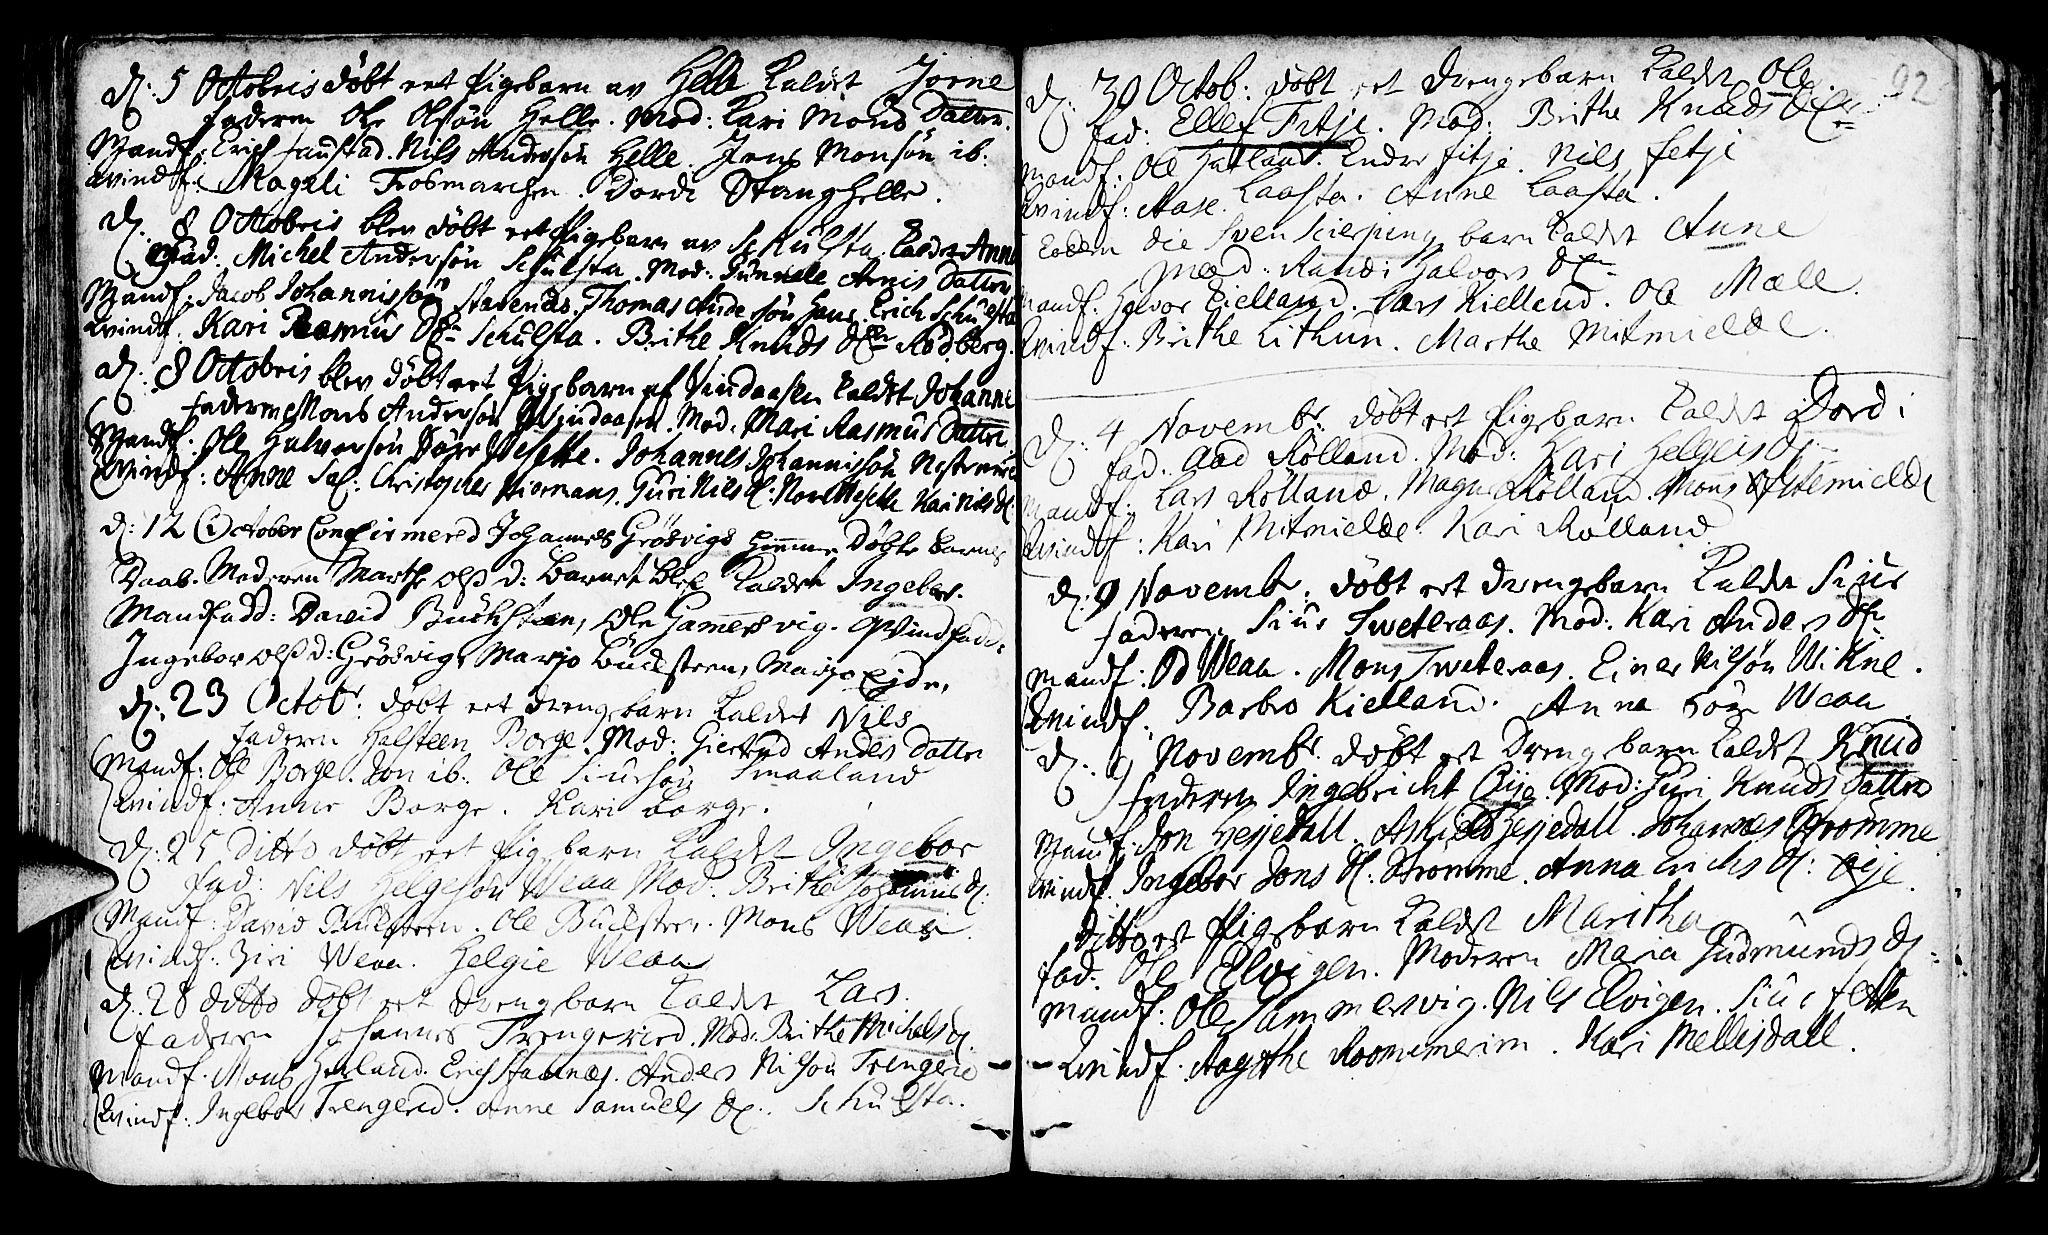 d: 5 Octobris döbt eet Pigebarn av Helle Kaldet Jorne
faderen Ole Olsön Helle. Mod: Kari Mons Datter.
Mandf: Erich faustad. Nils Andersön Helle. Jens Monsön ib.
Kvindf: Mageli Fosmarchen. Dordi Stanghelle.
d: 8 Octobris blev döbt eet Pigebarn av Schulsta Kaldet Anne
fad: Michel Andersön Schulsta. Mod: Gunnele Arnis Datter
Mandf: Jacob Johannissön Stavenes. Thomas Andersön Hans. Erich Schulsta
Kvindf: Kari Rasmus D: Schulsta. Brithe Knuds D: Rödberg.
d: 8 Octobris blev döbt eet Pigebarn af Vindaasen Kaldet Johanne
faderen Mons Andersön Windaasen. Mod. Mari Rasmus Datter
Mandf: Ole Halversön Söre Wesette. Johannes Johannissön
Kvindf: Anne Sal: Christopher Giermans. Guri Nils D: Nore Wesette Kari Nils D:
d: 12 October Confirmered Johannes Grösvigs hiemme Döbte barnes
Daab. Moderen Marthe Olss d: barnet blef Kaldet Ingebor.
Mandfadd: David Buchsteen, Ole Gamersvig. Qvindfadd:
Ingebor Olss d: Grösvig, Marjo Buchsteen, Marjo Eide,
d: 23 Octobr: döbt eet drengebarn Kaldet Nils
faderen Halsteen Borge. Mod: Giertrud Andes Datter
Mandf: Ole Borge. Jon ib: Ole Siursön Smaaland
Kvindf: Anne Borge. Kari borge.
d: 25 ditto döbt eet Pigebarn Kaldet Ingebor
fad: Nils Helgesön Weaa Mod: Brithe Johannis D:
Mandf: David Bucksteen. Ole Bucksteen. Mons Weaa.
Kvindf: Siri Weaa. Helgie Weaa
d. 28 ditto döbt eet drengebarn Kaldet Lars.
faderen Johannes Trengeried. Mod: Brithe Michels d.
Mandf. Mons Herland. Erich Stamnes. Anders Nilsön Trengere
Kvindf: Ingebor Trengered. Anne Samuels D: Schulsta.
92
d: 30 Octob: döbt eet drengebarn Kaldet Ole.
fad: Ellef Fetje. Mod: Brithe Knuds D:
Mandf: Ole Hatland. Ender fitje. Nils fetje
Kvindf: Aase Laasta. Anne Laasta.
Eodem die Sven Scierping barn Kaldet Anne
Mod: Randi Halvors D:
Mandf. Halvor Kielland. Lars Kielland. Ole Mæle.
Kvindf: Brithe Lithun. Marthe Mitmielde.
d: 4 Novembr: döbt eet Pigebarn Kaldet Dordi
fad: Aad Rölland. Mod: Kari Helgeis D:
Mandf: Lars Rölland. Magne Rölland. Mons Ystemielde
Kvindf: Kari Mitmielde. Kari Rölland
d: 9 Novembr: döbt eet drengebarn Kaldet Siur
faderen Siur Tweteraas. Mod: Kari Anders D:
Mandf: Od Weaa. Mons Tweteraas. Einer Nilsön Wikne.
Kvindf. Barbro Kielland. Anna Söre Weaa
d: 9 Novembr: döbt eet Drengebarn Kaldet Knud
faderen Ingebricht Øije. Mod: Guri Knuds Datter
Mandf: Jon Hesjedall. Askield Hesjedall. Johannes Strömme
Kvindf. Ingebor Jons D: Strömme. Anna Erichs D: Øije.
ditto et Pigebarn Kaldet Maritha
fad: Ole Elvigen. Moderen Maria Gudmunds D:
Mandf: Ole Sammersvig. Nils Elvigen. Siur fetten
Kvindf. Aagothe Rommerim. Kari Mellisdall.